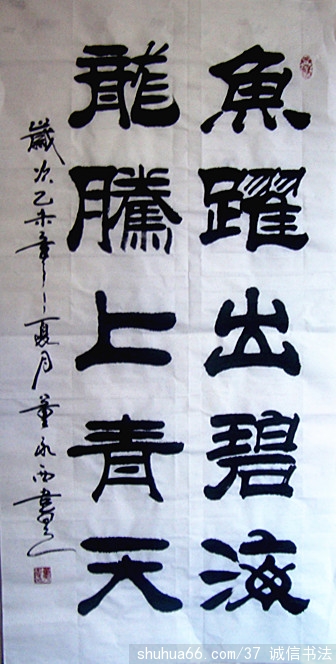 魚躍出碧海
龍騰上青天
歲次乙未年夏月董永西書
shuhua66.com/37 诚信书法